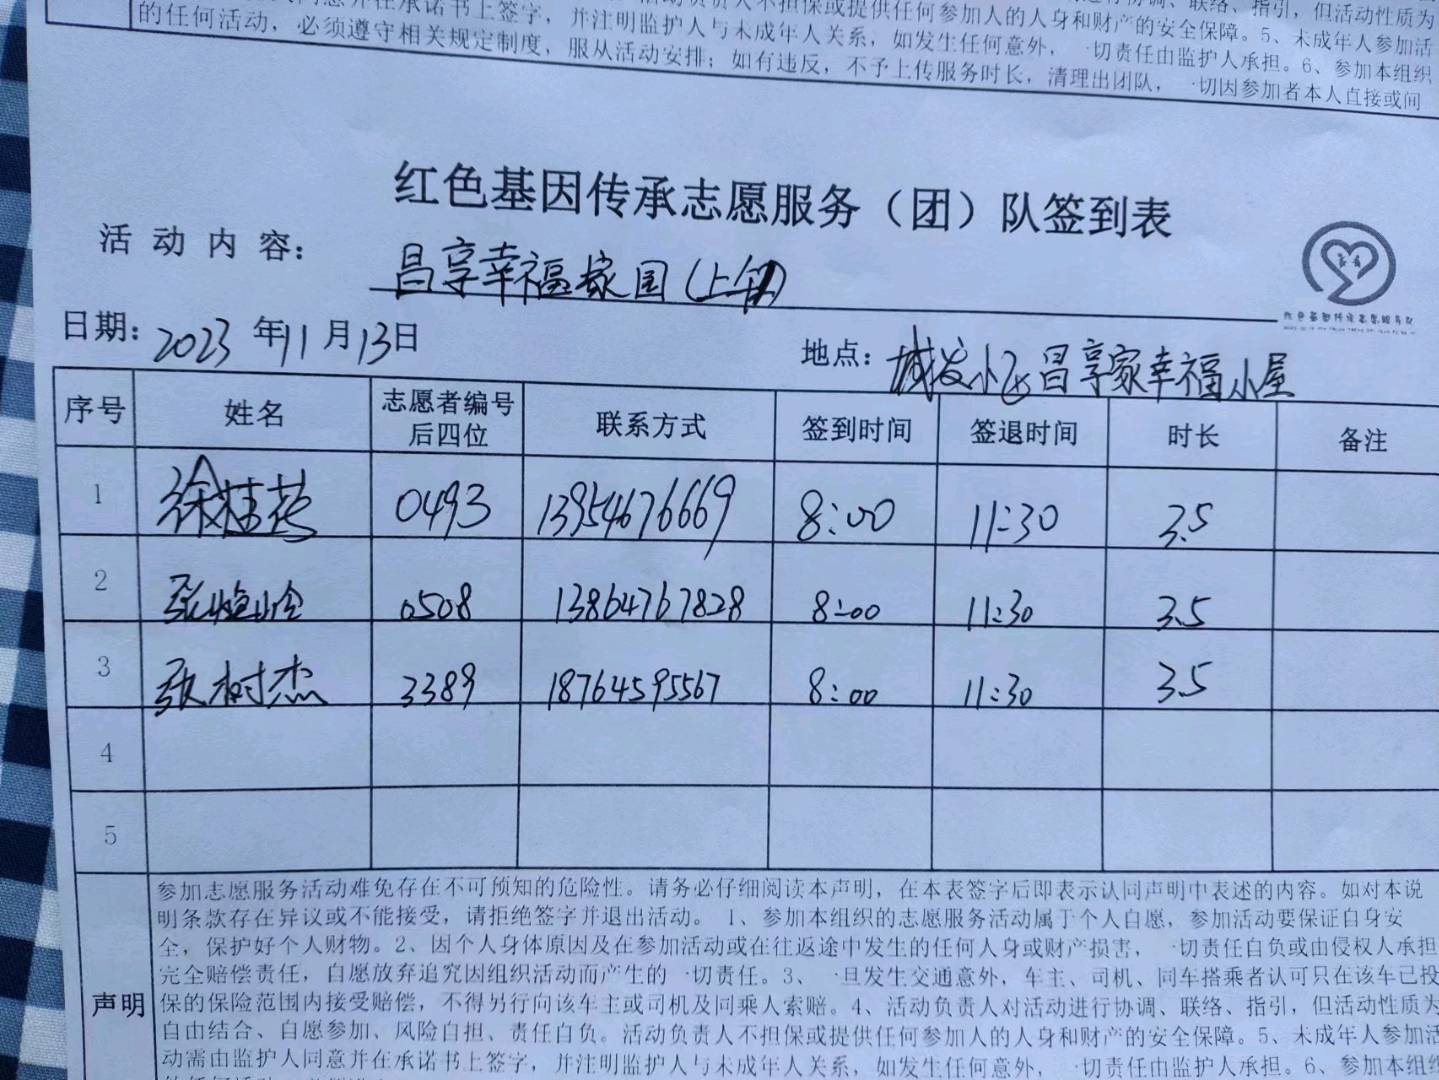 的任何活动，必须遵守相关规定制度，服从活动安排；如有违反，不予上传服务时长，清理出团队，一切因参加者本人直接或间
红色基因传承志愿服务（团）队签到表
活动内容：昌享幸福家园(上午)
日期：2023年11月13日 地点：城发小区昌享家幸福小屋
序号 姓名 志愿者编号后四位 联系方式 签到时间 签退时间 时长 备注
1 徐桂芬 0493 13954676669 8:00 11:30 3.5
2 张 0508 13864767828 8:00 11:30 3.5
3 张树杰 3389 18764595567 8:00 11:30 3.5
4
5
声明
参加志愿服务活动难免存在不可预知的危险性。请务必仔细阅读本声明，在本表签字后即表示认同声明中表述的内容。如对本说
明条款存在异议或不能接受，请拒绝签字并退出活动。1、参加本组织的志愿服务活动属于个人自愿，参加活动要保证自身安
全，保护好个人财物。2、因个人身体原因及在参加活动或在往返途中发生的任何人身或财产损害，一切责任自负或由侵权人承担
完全赔偿责任，自愿放弃追究因组织活动而产生的一切责任。3、一旦发生交通意外，车主、司机、同车搭乘者认可只在该车已投
保的保险范围内接受赔偿，不得另行向该车主或司机及同乘人索赔。4、活动负责人对活动进行协调、联络、指引，但活动性质为
自由结合、自愿参加、风险自担、责任自负。活动负责人不担保或提供任何参加人的人身和财产的安全保障。5、未成年人参加活
动需由监护人同意并在承诺书上签字，并注明监护人与未成年人关系，如发生任何意外，一切责任由监护人承担。6、参加本组织